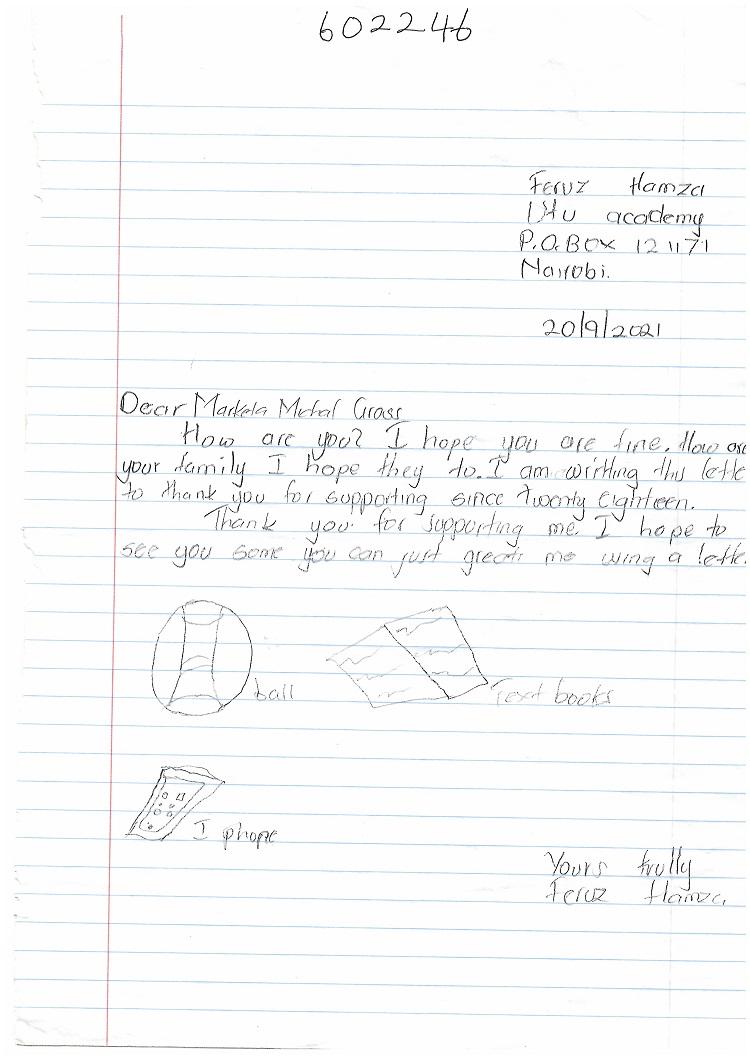 602246
Feruz Hamza
academy
P.O. Box 121171
Nairobi.
20/9/2021
Dear Markela
How are you? I hope you are fine. How are
your family I hope they to. I am writting this lette
to thank you for supporting since twenty eighteen.
Thank you for supporting me. I hope to
see you some you can just me a lette
ball
Text books
I phone
Yours trully
Feruz Hamza